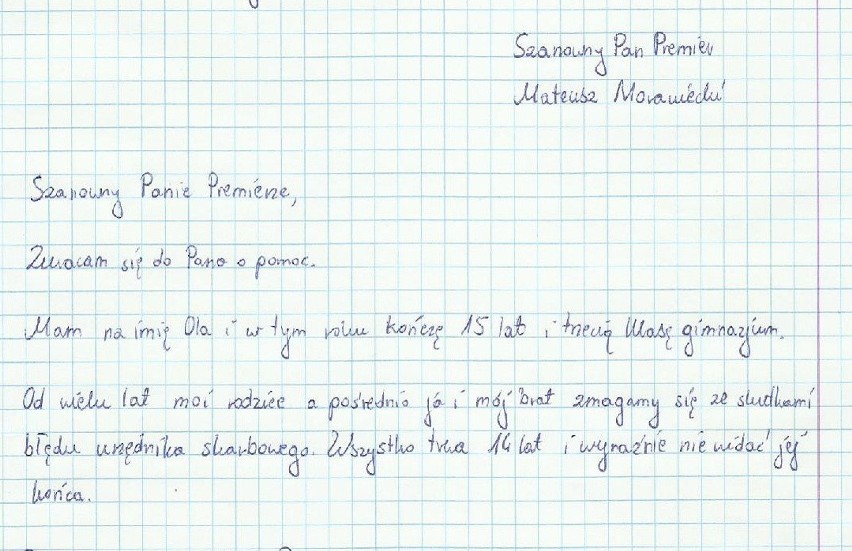 Szanowny Pan Premier
Mateusz Morawiecki
Szanowny Panie Premierze,
Zwracam się do Pana o pomoc.
Mam na imię Ola i w tym roku kończę 15 lat i trzecią klasę gimnazjum.
Od wielu lat moi rodzice a pośrednio ja i mój brat zmagamy się ze skutkami
błędu urzędnika skarbowego. Wszystko trwa 14 lat i wyraźnie nie widać jej
końca.